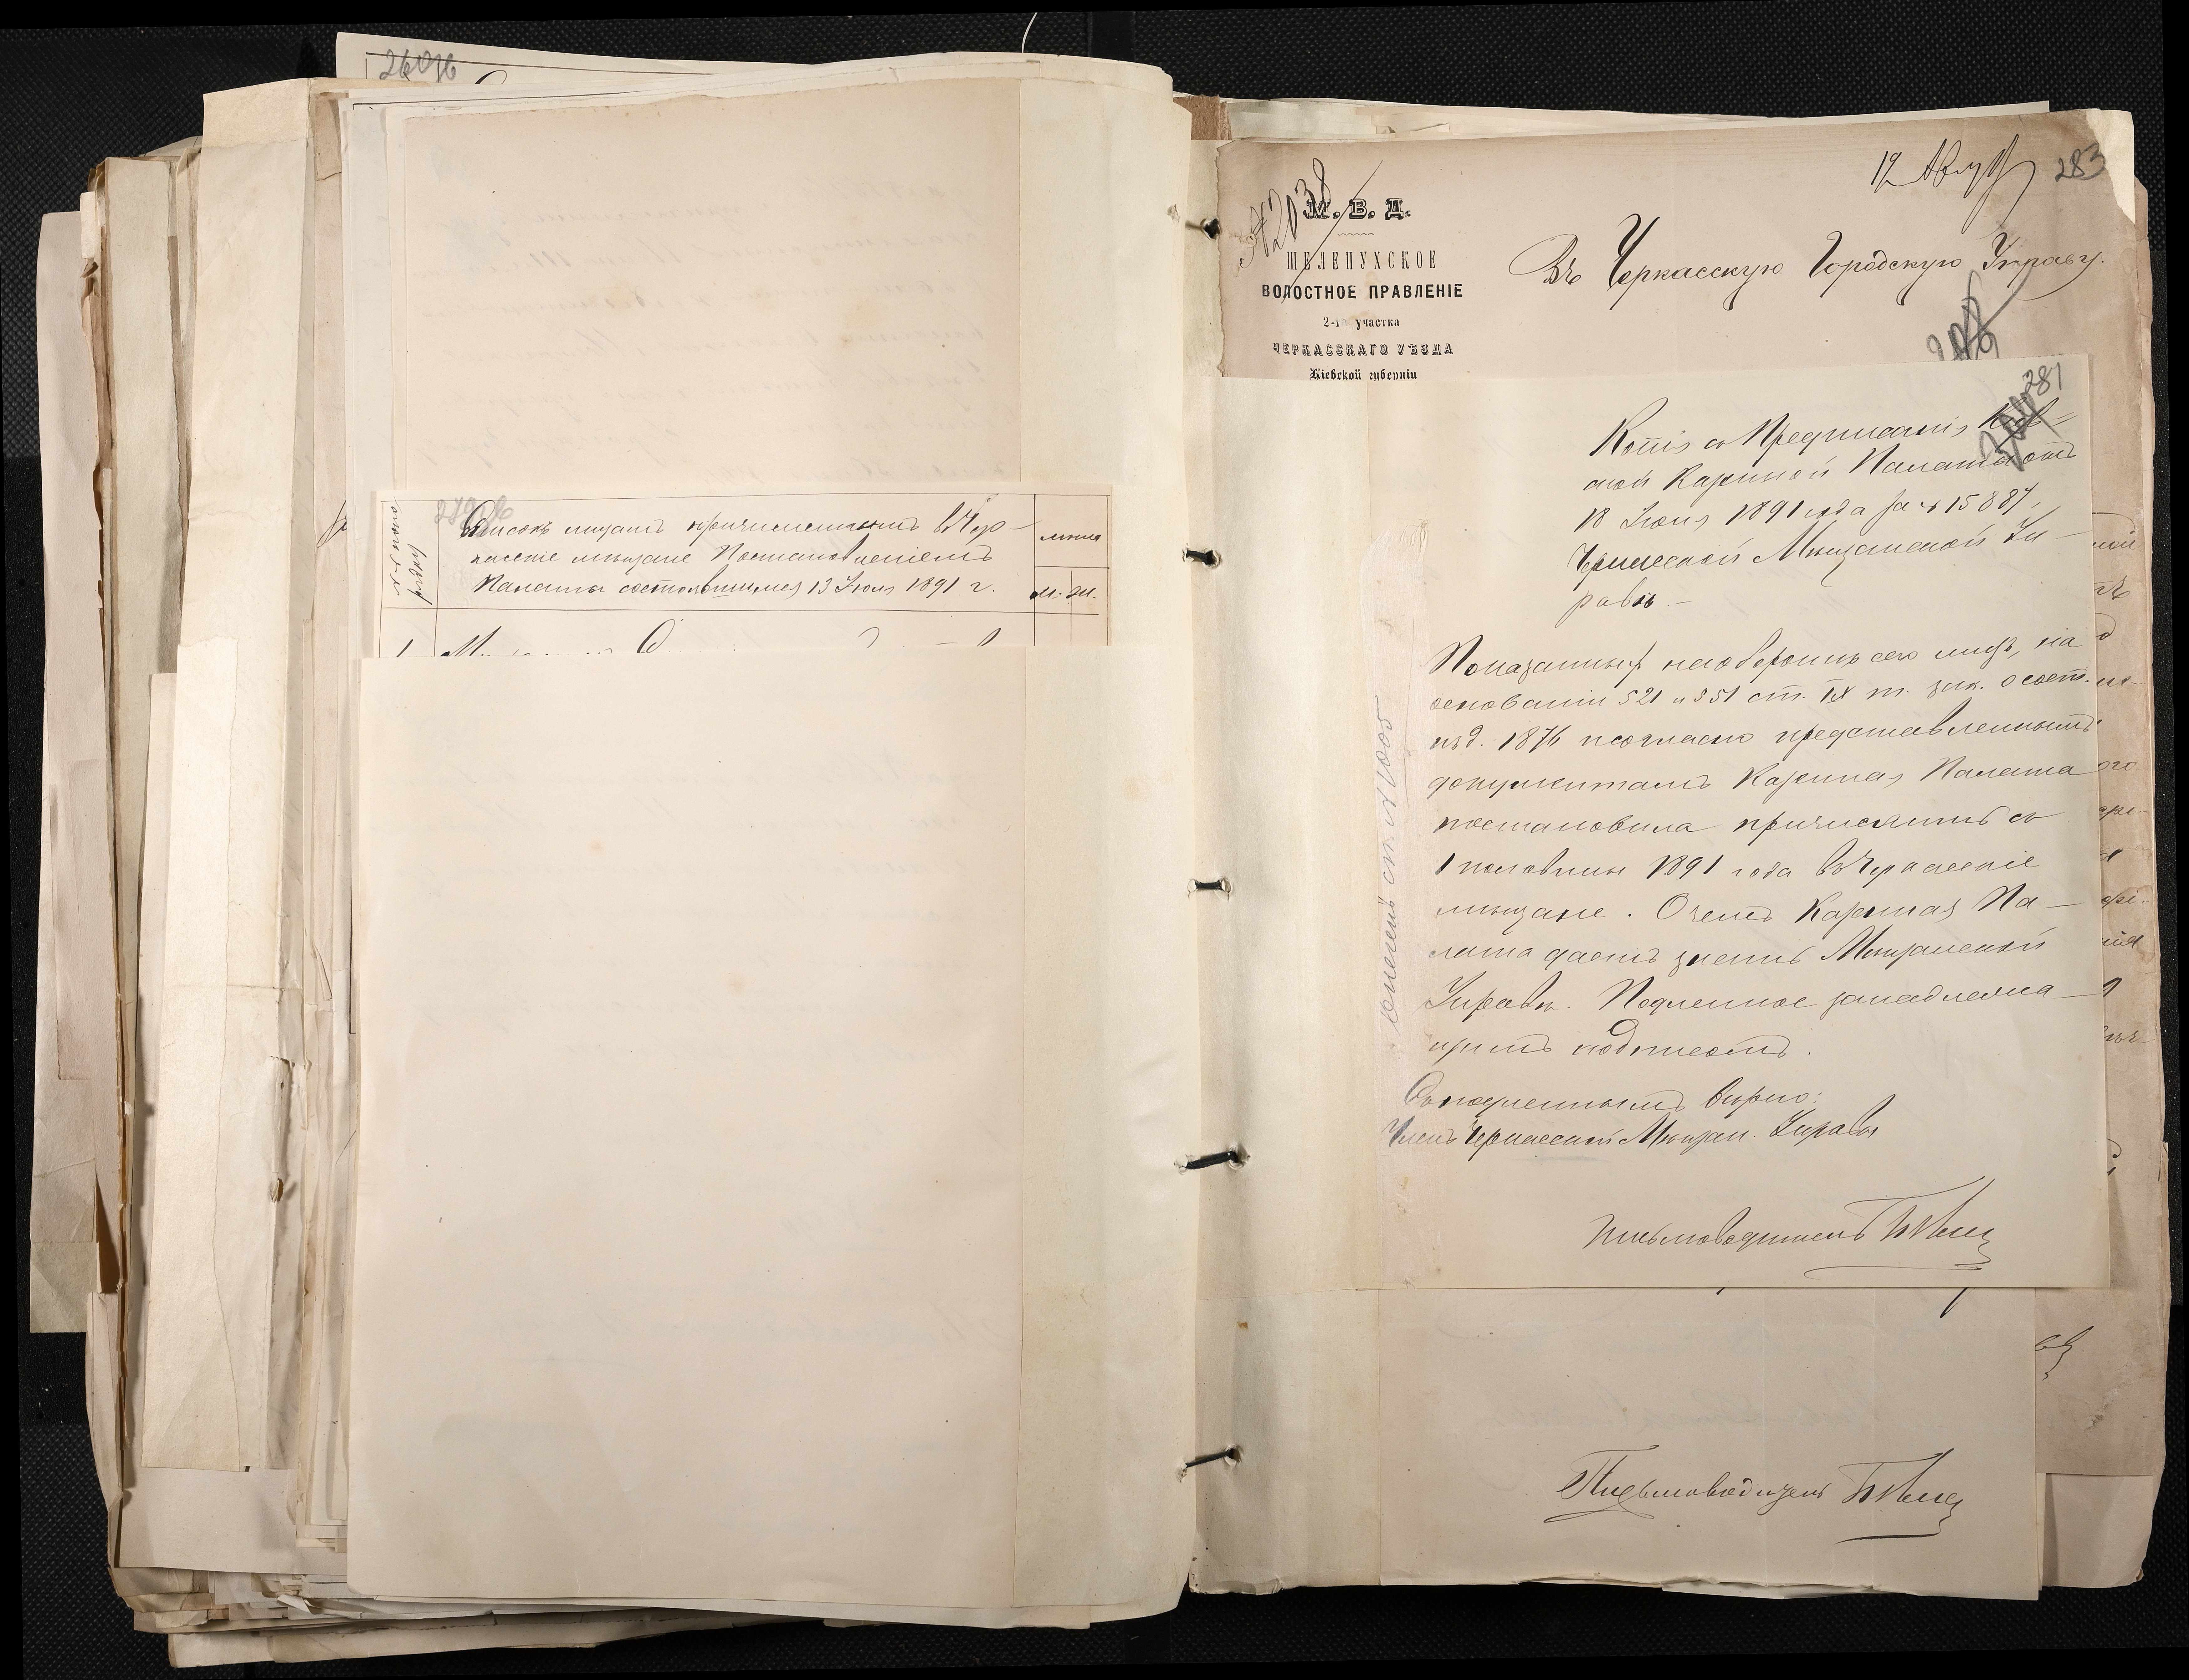 260
№ по по-
рядку
Списокъ лицамъ причисленнымъ въ Чер-
касскіе мѣщане Постановленіемъ
Палаты состоявшимся 13 Іюня 1891 г.
число
м. ж.
1
283
№ 2038
М. В. Д.
ШЕЛЕПУХСКОЕ
ВОЛОСТНОЕ ПРАВЛЕНІЕ
2-го участка
ЧЕРКАССКАГО УѢЗДА
Кіевской губерніи
Въ Черкасскую Городскую Управу.
281
Копія съ Предписанія Кіев-
ской Казенной Палаты отъ
18 Іюня 1891 года за № 15887,
Черкасской Мѣщанской Уп-
равѣ. –
Показанныхъ на оборотѣ сего лицъ, на
основаніи 521 и 551 ст. IX т. зак. о сост.
изд. 1876 и согласно представленнымъ
документамъ Казенная Палата
постановила причислить съ
1 половины 1891 года въ Черкасскіе
мѣщане. О чемъ Казенная Па-
лата даетъ знать Мѣщанской
Управѣ. Подленное за надлежа-
щимъ подписомъ.
Съ подленнымъ вѣрно:
Членъ Черкасской Мѣщан. Управы
Письмоводитель
Письмоводитель